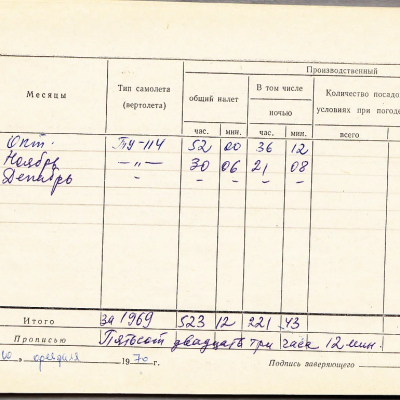 Производственный
Месяцы Тип самолета (вертолета) общий налет В том числе Количество посадо
ночью условиях при погоде
час. мин. час. мин. всего
Окт. Ту-114 52 00 36 12
Ноябрь —„— 30 06 21 08
Декабрь - - - - -
Итого за 1969 523 12 221 43
Прописью Пятьсот двадцать три часа 12 мин.
10 „ февраля 1970 г. Подпись заверяющего